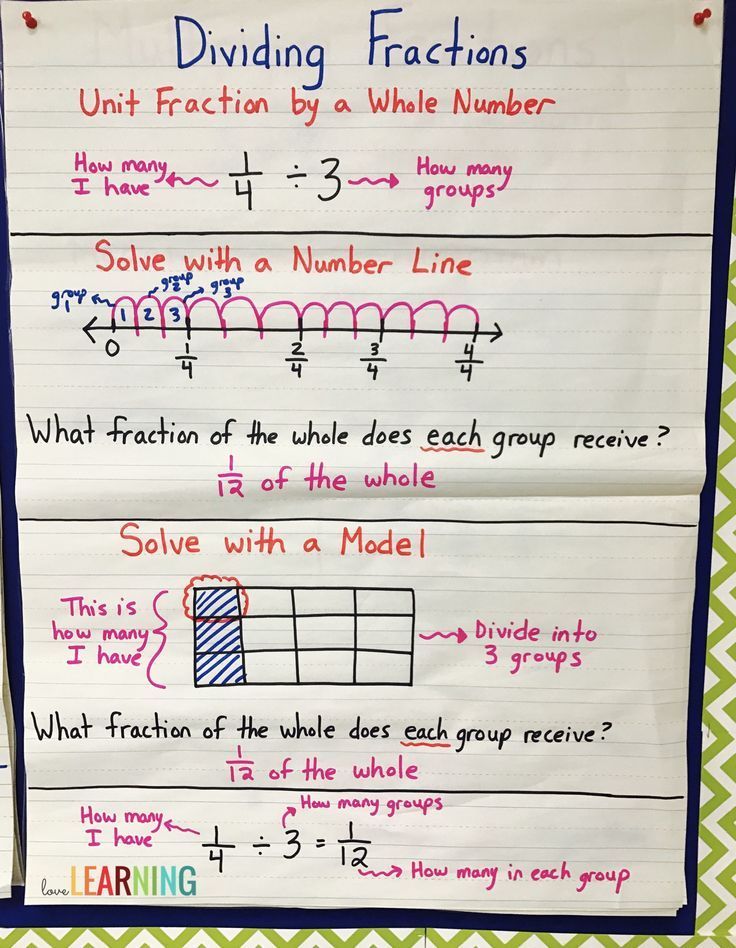 Dividing Fractions
Unit Fraction by a Whole Number
How many
I have
1/4 ÷ 3
How many
groups
Solve with a Number Line
group 1
group 2
group 3
1 2 3
0 1/4 2/4 3/4 4/4
What fraction of the whole does each group receive?
1/12 of the whole
Solve with a Model
This is
how many
I have
Divide into
3 groups
What fraction of the whole does each group receive?
1/12 of the whole
How many
I have
How many groups
1/4 ÷ 3 = 1/12
How many in each group
love LEARNING